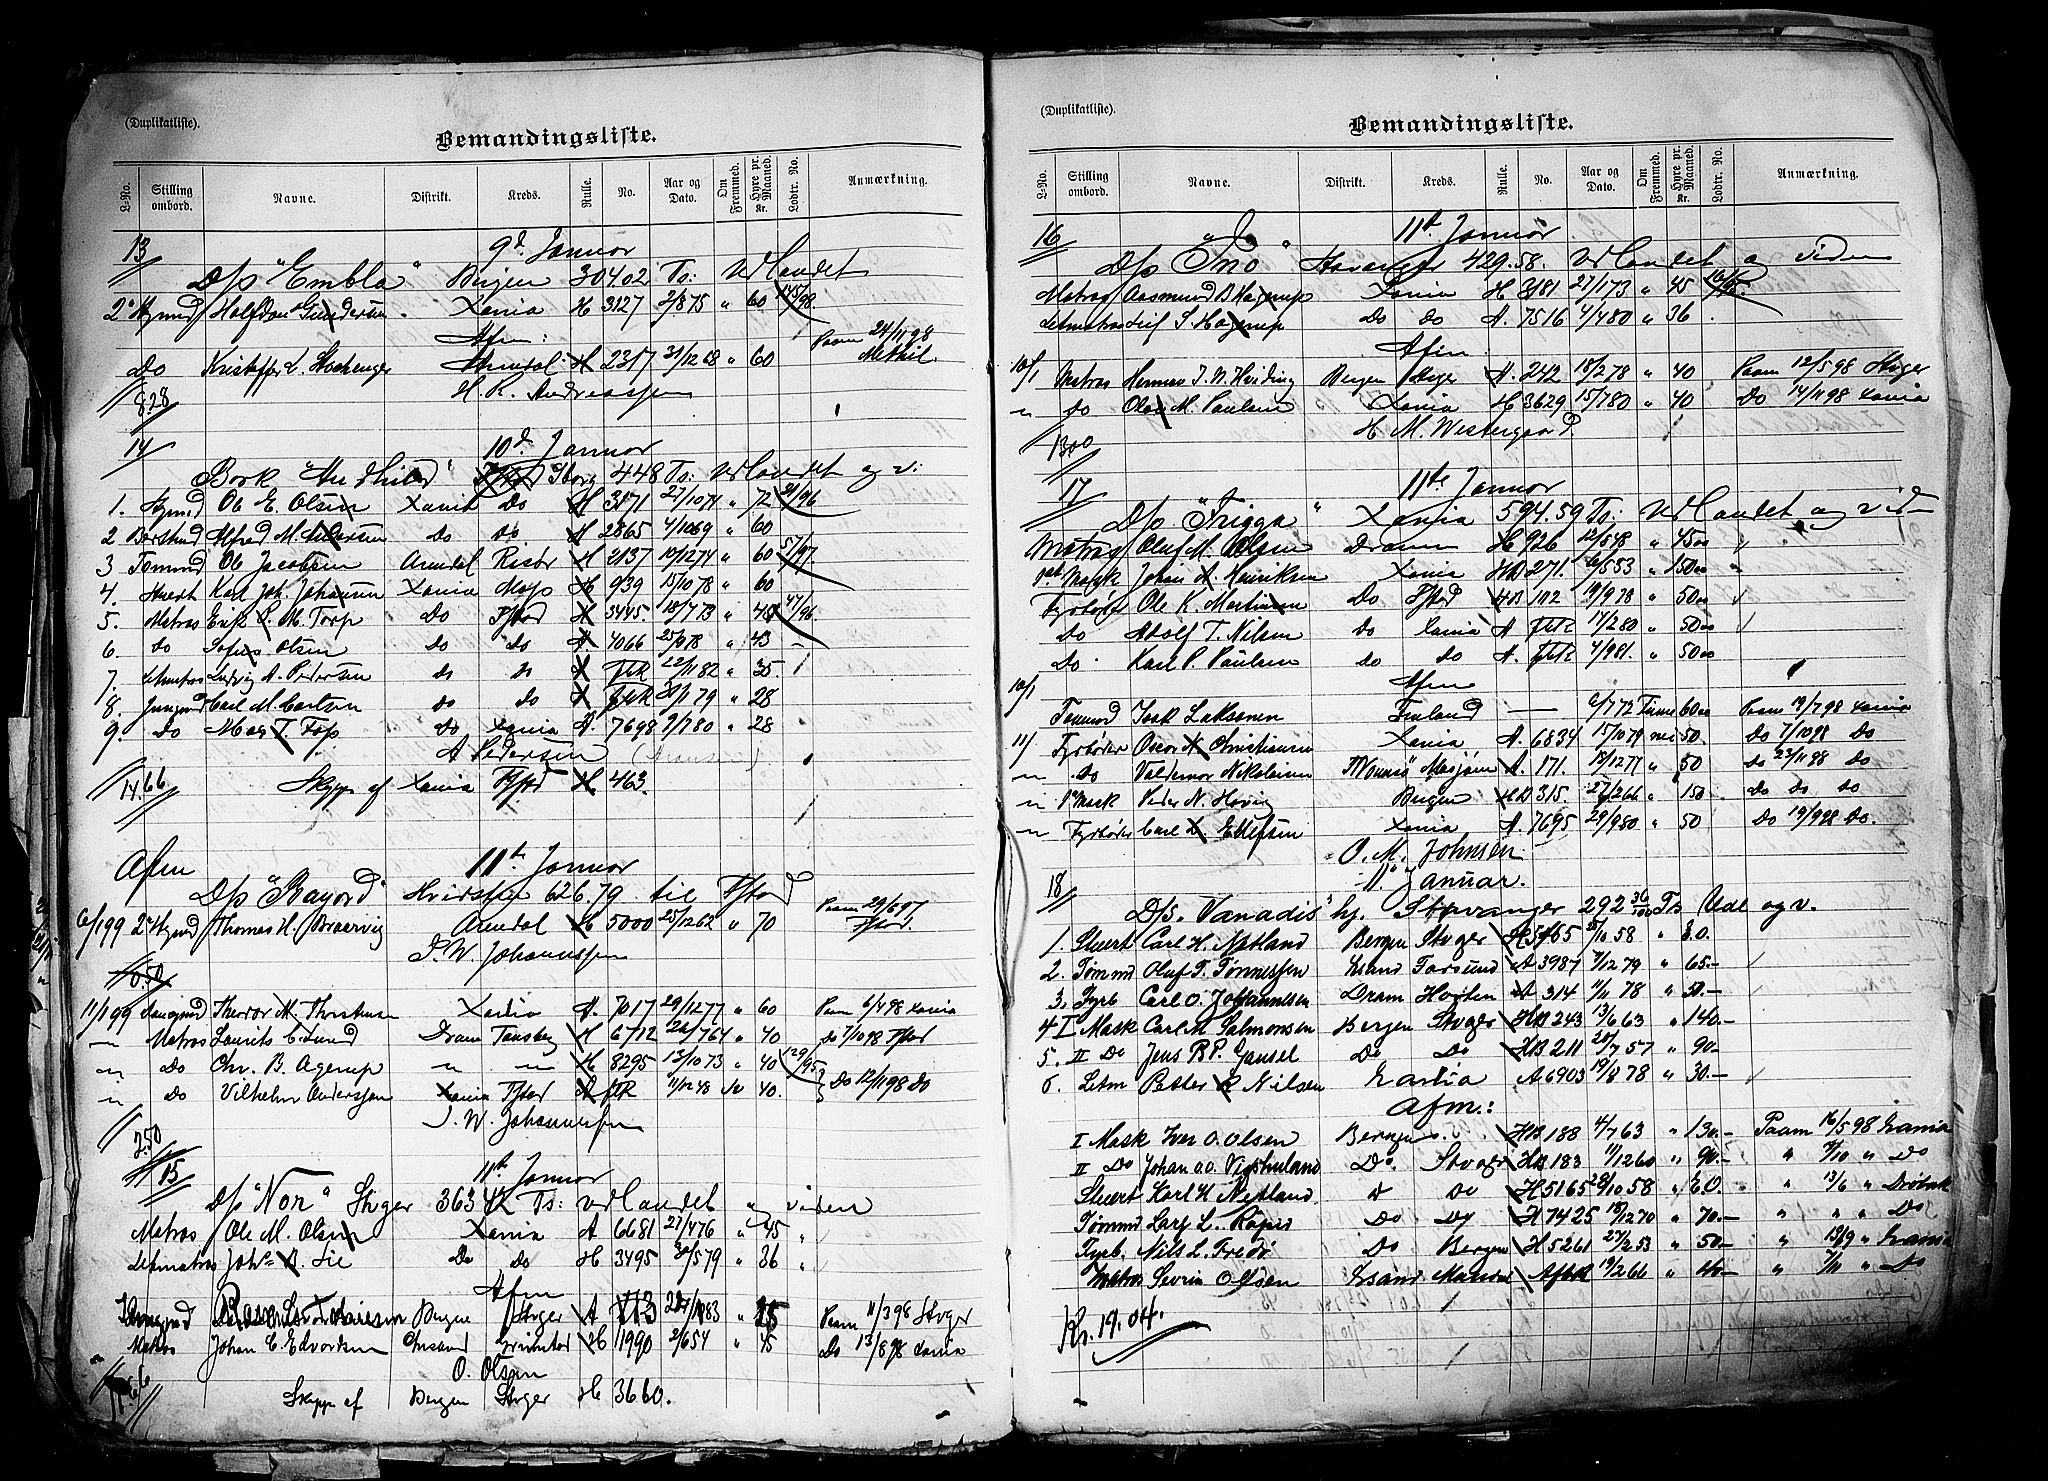 (Duplikatliste).
Bemandingsliste.
L-No. Stilling ombord. Navne. Distrikt. Kreds. Rulle. No. Aar og Dato. Om Fremmed. Hyre pr. Maaned. Kr. Lodtr. No. Anmærkning.
13 9d Januar
D/s "Embla" Bergen 304.02 Ts: Udlandet
2' Stymd Halfdan Gundersen Xania H 3127 2/8 75 " 60 145/98
Afm:
Do Kristoffer L. Arendal H 2317 31/12 68 " 60 Paam 24/11 98 Methil
H. R. Andreassen
8.28
14 10d Januar
Bark 448 Ts: Udlandet og v:
1. Stymd Ole E. Olsen Xania Do H 3171 27/10 71 " 72 21/96
2 Alfred M. Do Do H 2865 4/10 69 " 60
3 Tømmd Ole Jacobsen Arendal Risør H 2137 10/12 74 " 60 57/97
4. Stuert Karl Joh. Johansen Xania Moss H 939 15/10 78 " 60
5. Matros Erik P. M. Torp Do Fstad H 3445. 18/7 73 " 48 47/96
6. do Sofus Olsen do do A 4066 25/9 78 " 43
7. Letmatros Ludvig A. Pedersen do do 22/11 82 " 35.
8. Jungmd Carl M. Carlsen do do 79 " 28
9. Do T. Do Xania A. 7698 9/7 80 " 28
A Pedersen
14.66 Skipp af Xania Fstad H 463.
Afm 11te Januar
D/s 626.79 til Fstad
6/1 99 2n Stymd Thomas H. Arendal H 5000 25/12 62 " 70 Paam 29/6 97 Fstad.
J. W. Johannessen
0.50
11/1 99 Theodor M. Thorstensen Xania A. 7017 29/12 77 " 60 Paam 6/4 98 Xania
" Matros Laurits C. Lund Dram Tønsberg H 6712 20/7 64 " 40 Do 7/10 98 Fstad
" Do Chr. B. Agerup " " H 8295 13/10 73 " 40 129/95
" Do Vilhelm Anderssen Xania Fstad A 11/12 48 40. Do 12/11 98 Do
J. W. Johannessen
2.50
15 11te Januar
D/s "Nor" Stvger 363.42 Ts: Udlandet og viden
Matros Ole M. Olsen Xania A 6681 27/4 76 " 45
Letmatros Joh. B. Lie Do Do H 3495 30/5 79 " 36
Afm
Bergen Stvger A 113 83 " 25 Paam 11/3 98 Stvger
Matros Johan C. Edvardsen H 1990 2/6 54 " 45 Do 13/8 98 Xania
O. Olsen
Skipp af Bergen Stvger H 3660.
(Duplikatliste).
Bemandingsliste.
L-No. Stilling ombord. Navne. Distrikt. Kreds. Rulle. No. Aar og Dato. Om Fremmed. Hyre pr. Maaned. Kr. Lodtr. No. Anmærkning.
16 11te Januar
D/s "Ino" Stavanger 429.58. Udlandet og viden
Matros Aasmund B. Hagerup Xania H 3181 27/1 73 " 45
Letmatros Leif S. Hagerup Do do A. 7516 4/4 80 " 36
Afm
10/1 Matros Herman J. N. Hviding Bergen Stvger A. 242 18/2 78 " 40 Paam 12/5 98 Stvger
" do Olaf M. Paulsen Xania H 3629 15/7 80 " 40 Do 14/11 98 Xania
H. M. Westergaard.
1300
17 11te Januar
D/s "Frigga" Xania 594.59 Ts: Udlandet og vid
Matros Oluf M. Olsen Dram H 926 12/5 48 " 45 00
1ste Mask Johan A. Henriksen Xania HB 271. 6/5 53 " 150 00
Fyrbøder Ole K. Martinsen Do Fstad HB 102 19/9 78 " 50 00
Do Adolf T. Nilsen Do Xania A 17/2 80 " 50 00
Do Karl P. Paulsen do do A. 4/9 81. " 50 00
Afm
10/1 Tømmd Isak Laksonen Finland — 6/7 72 Finne 60 00 Paam 19/7 98 Xania
11/ Fyrbøder Oscar N. Christiansen Xania A. 6834 15/10 79 nei 50. Do 7/10 98 Do
" Do Valdemar Nikolaisen Mosjøen A. 171. 18/12 77 " 50 do 23/11 98 do
" 1' Mask Peder N. Høvig Bergen HB 315. 27/2 66 " 150 do do do
" Fyrbøder Carl L. Ellefsen Xania A. 7695 29/9 80 " 50 Do 19/9 98 Do.
O. M. Johnsen.
18 11te Januar.
D/s. Vanadis" hj. Stavanger 292 36/100 Ts Udl og v.
1. Stuert Carl H. Netland Bergen Stvger H 5165 28/10 58 " E.O.
2. Tømmd Oluf T. Tønnessen Xsand Farsund A 3987 7/12 79 " 65.—
3. Fyrb Carl O. Johannesen Dram Horten A 314 11/11 78 " 50.—
4 I Mask Carl M Salmonsen Bergen Stvger HB 243 13/6 63 " 140.—
5. II Do Jens B. P. Gausel Do Do HB 211 20/7 57 " 90—
6. Letm Petter R Nilsen Xania A 6903 19/8 78 " 30.—
Afm.:
I Mask Iver O. Olsen Bergen HB 188 4/7 63 " 130.— Paam 16/5 98 Xania
II Do Johan A. O. Vigshuland Do. Stvger HB 183 11/12 60 " 90.— " 7/10 " Do
Stuert Karl H Netland d Do H 5165 28/10 58 " E.O. " 13/6 " Drøbak
Tømmd Lars L. Do Do H 7425 18/12 70 " 70.— " " " Do
Fyrb. Nils L. Fredø Do Bergen H 5261 27/2 53 " 50— " 13/9 " Xania
Matros Severin Olsen Xsand Mandal A 19/2 66 " 40— " 7/11 " Do
Kr. 19.04.